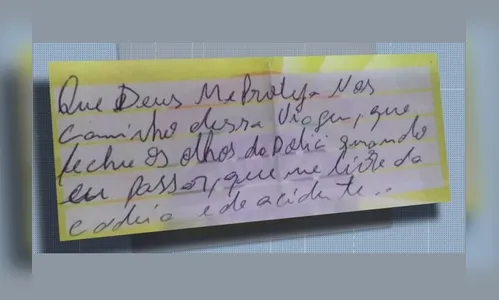 Que Deus Me Proteja Nos
caminho dessa Viagem, que
feche os olhos da Polici quando
eu passar, que me livre da
cadeia e de acidente...